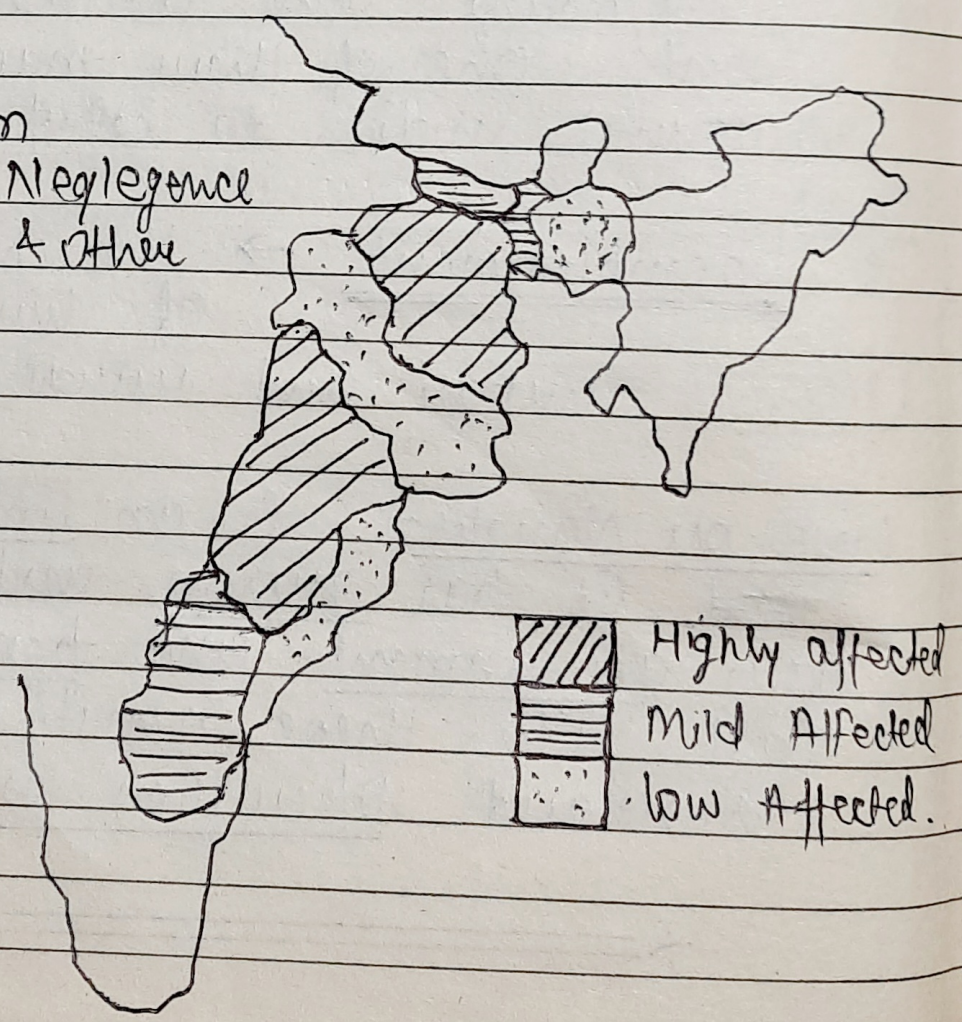 n
Neglegence
& Other
Highly affected
Mild Affected
low Affected.